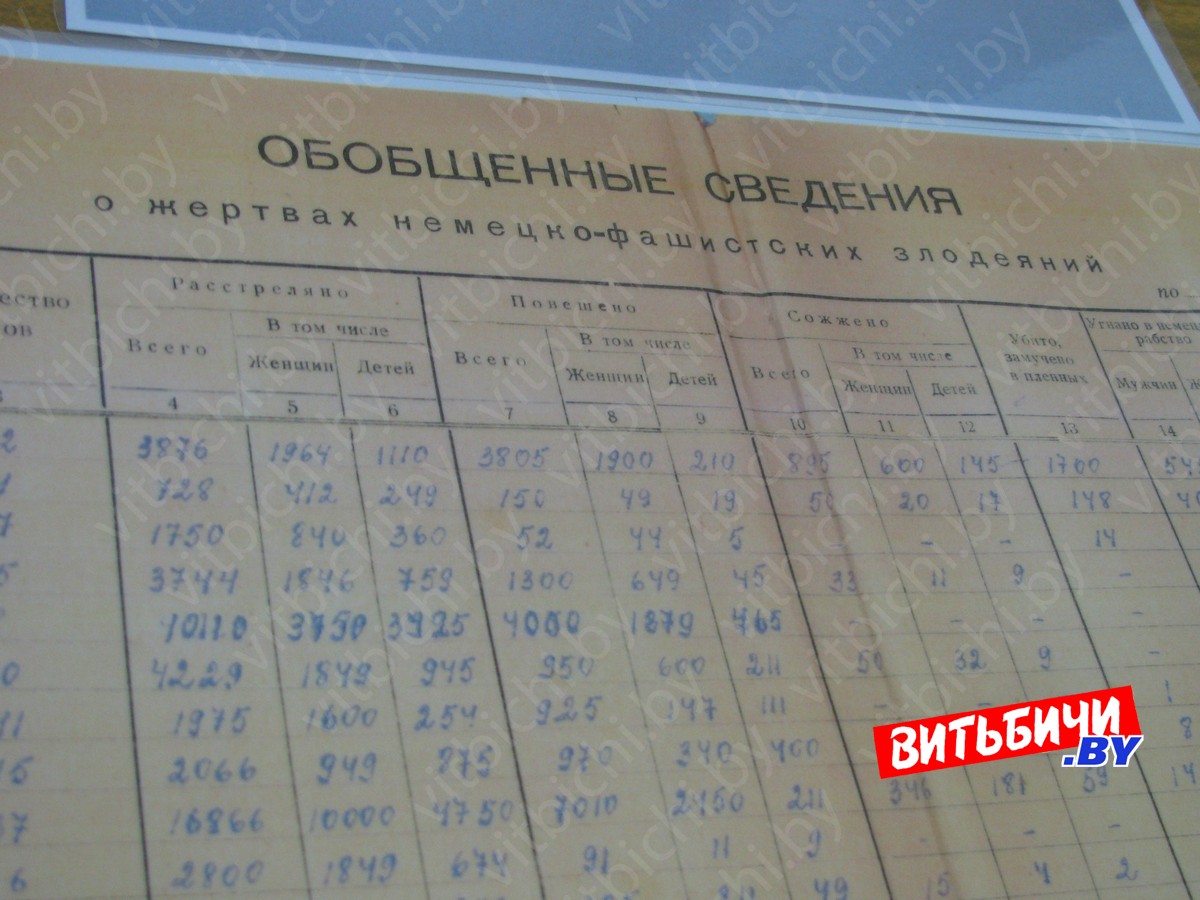 ОБОБЩЕННЫЕ СВЕДЕНИЯ
о жертвах немецко-фашистских злодеяний
по
ество
ов
Расстреляно
Повешено
Сожжено
Убито,
замучено
в пленных
Угнано в немец
рабство
Всего
В том числе
Всего
В том числе
Всего
В том числе
Женщин Детей
Женщин Детей
Женщин Детей
Мужчин
3 4 5 6 7 8 9 10 11 12 13 14
2 3876 1964 1110 3805 1900 210 895 600 145 1700
728 412 249 150 49 19 50 20 17 148
7 1750 840 360 52 44 5 - - - 14
5 3744 1846 759 1300 649 45 33 11 9 -
10110 3750 3925 4000 1879 465 - - - -
0 4229 1849 945 950 600 211 50 32 9 -
11 1975 1600 254 925 147 111 - -
15 2066 949 875 970 340 400 346 181 59 14
37 16866 10000 4750 7010 2450 211 - - -
6 2800 1849 674 91 11 9 15 4 2
49
ВИТЬБИЧИ
.BY
vitbichi.by